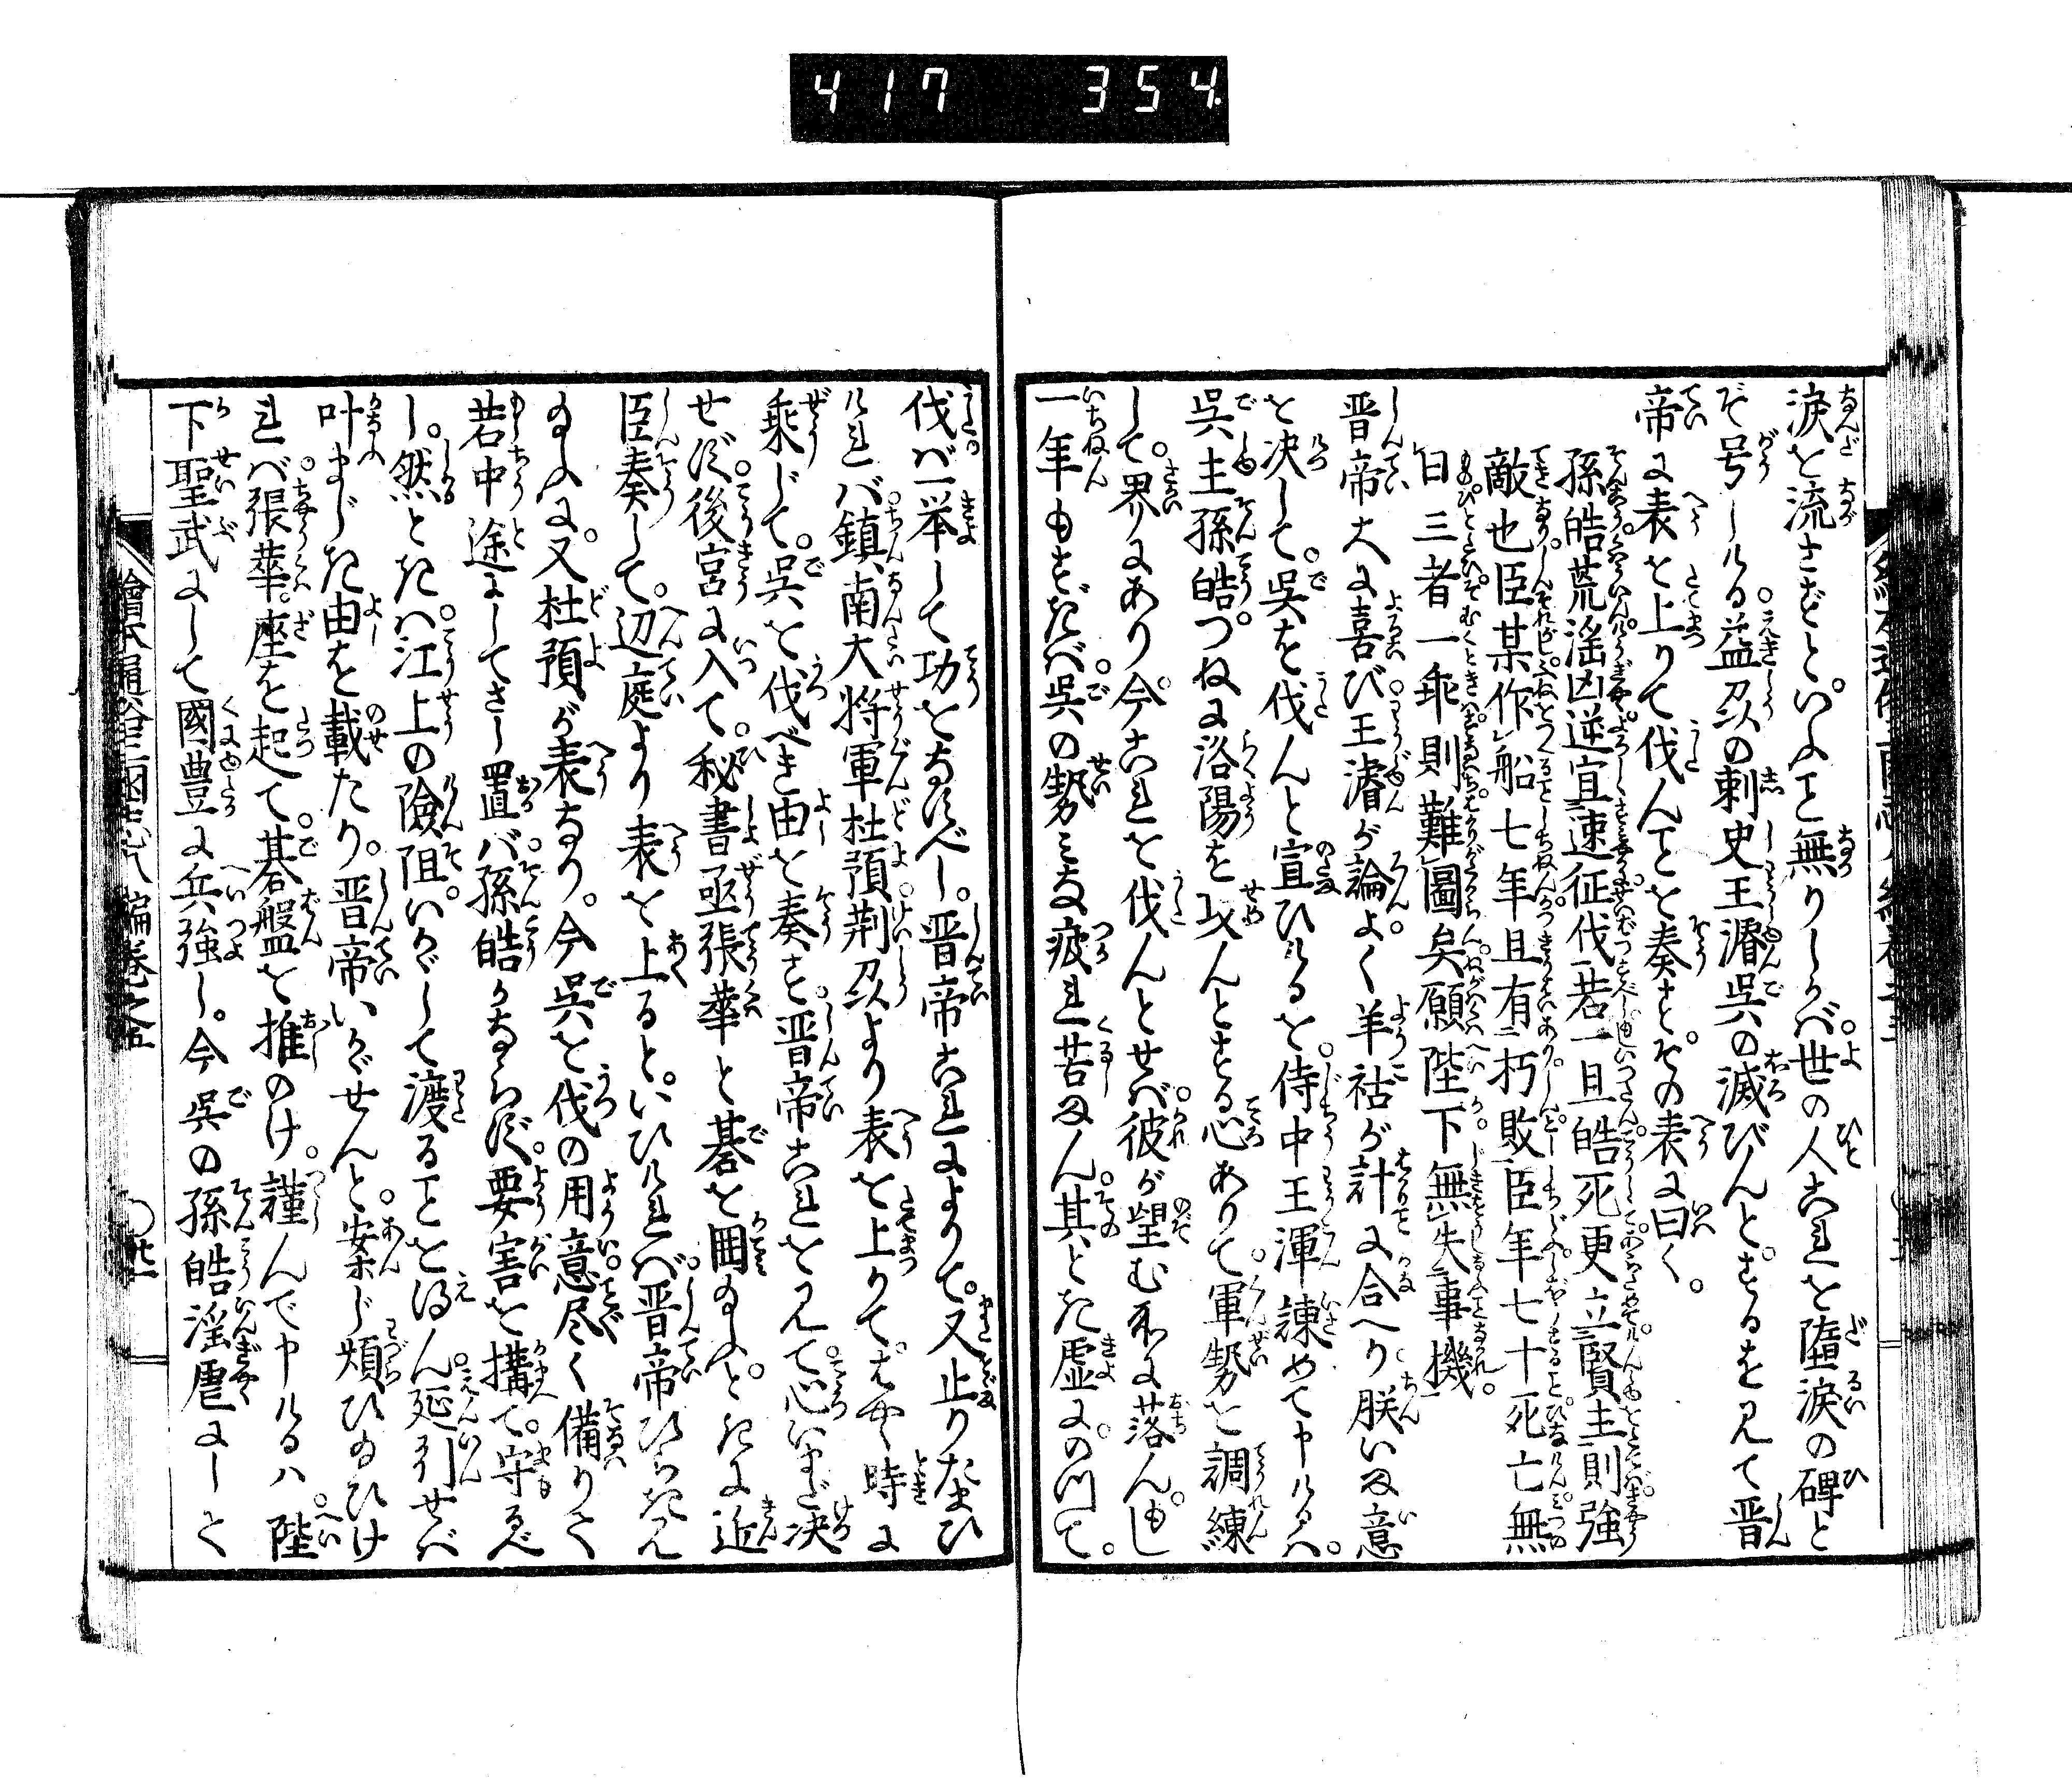 417 354.
涙を流さずといふこと無りしかバ。世の人これを堕涙の碑と
ぞ号しける。益州の刺史王濬呉の滅びんとするを見て晋
帝に表を上りて伐んことを奏す。その表に曰く。
孫皓荒淫凶逆宜速征伐若一旦皓死更立賢主則強
敵也臣某作船七年且有朽敗臣年七十死亡無
日三者一乖則難圖矣願陛下無失事機
晋帝大に喜び王濬が論よく羊祜が計に合へり朕いま意
を決して。呉を伐んと宣ひけるを侍中王渾諫めて申けるハ。
呉主孫皓。つねに洛陽を攻んとする心ありて。軍勢を調練
して。界にあり。今これを伐んとせバ彼が望む所に落ん。もし
一年もすぎバ。呉の勢ミな疲れ苦まん。其とき虚にのつて。
伐バ一挙して功をなすべし。晋帝これによりて。又止りたまひ
けれバ鎮南大将軍杜預荆州より表を上りて。はや時に
乗じて。呉を伐べき由を奏す晋帝これを見て心いまだ決
せず。後宮に入て。秘書丞張華と碁を囲たまふ。ときに近
臣奏して。辺庭より表を上ると。いひけれバ。晋帝ひらきみ
たまふに。又杜預が表なり。今呉を伐の用意尽く備りて
若中途にしてさし置バ。孫皓かならず。要害を構て。守るべ
し。然ときハ江上の険阻。いかゞして渡ることを得ん。延引せバ
叶まじき由を載たり。晋帝いかゞせんと案じ煩ひたまひけ
れバ張華。座を起て。碁盤を推のけ。謹んで申けるハ。陛
下聖武にして國豊に兵強し。今呉の孫皓淫虐にして
繪本通俗三國志八編巻之五
廿一